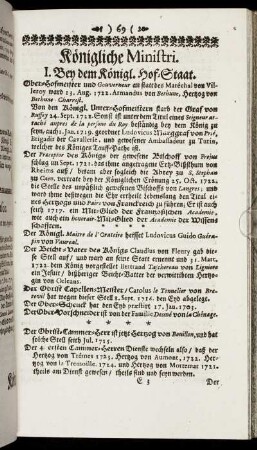 ) 69 (
Königliche Ministri.
I. Bey dem Königl. Hof-Staat.
Ober-Hofmeister und Gouverneur an statt des Maréchal von Vil-
leroy ward 13. Aug. 1722. Armandus von Bethune, Hertzog von
Bethune-Charost.
Von den Königl. Unter-Hofmeistern starb der Graf von
24. Sept. 1718. Sonst ist unter dem Titul eines Seigneur at-
taché aupres de la person du Roy beständig bey dem König zu
seyn, Jan. 1719. geordnet Ludovicus von
Brigadir der Cavallerie, und gewesener Ambassadeur zu Turin,
welcher des Königes ist.
Der Præceptor des Königes der gewesene Bischoff von
schlug im Sept. 1721. das ihme angetragene Ertz-Bißthum von
Rheims auß / deme aber zugleich die Abtey zu S.
zu Caen, vertrat bey der Königlichen Crönung 25. Oct. 1722.
die Stelle des unpäßlich gewesenen Bischoffs von Langres; und
ward ihme deßwegen die Ehr ertheilt Lebenslang den Titul ei-
nes Hertzogs und Pairs von Franckreich zu führen. Er ist auch
seith 1717. ein Mit-Glied der Frantzösischen Academie,
wie auch ein Mit-Glied der Academie der Wissen-
schafften.
Der Königl. Maitre de l'Oratoire heisset Ludovicus Guido
von Vaureal.
Der Beichts-Vater des Königs Claudius von Fleury gab die-
se Stell auf / und ward an seine Statt ernennt und 31. Mart.
1722. dem König vorgestellet Bertrand von Lignieres
ein Jesuit / bißheriger Beicht-Vatter der verwittibten Hertzo-
gin von Orleans.
Der Obrist Capellen-Meister / Carolus le Tonnelier von Bre-
teuil hat wegen dieser Stell 1. Sept. 1716. den Eyd abgelegt.
Der Ober-Schenck hat den Eyd præstirt 17. Jan. 1723.
Der Ober-Vorschneider ist von der Familie von la Chesnaye.
* * *
Der Obrist-Cammer-Herr ist jetzt Hertzog von Bouillon, und hat
solche Stell seith Jul. 1715.
Der 4. ersten Cammer-Herren Dienste wechseln also / daß der
Hertzog von Trêmes 1723. Hertzog von Aumont, 1722. Her-
tzog von la Tremouille, 1724. und Hertzog von Mortemar 1721.
theils am Dienst gewesen / theils seyn werden.
E 3
Der